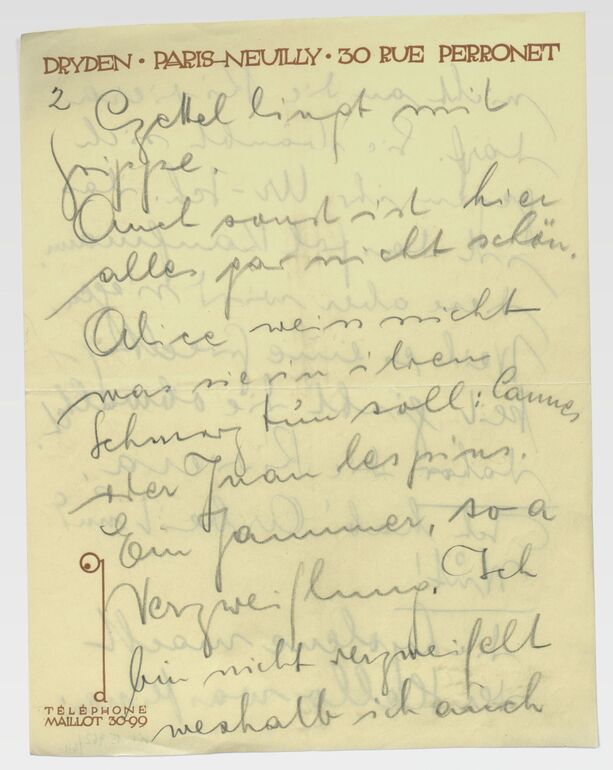 DRYDEN • PARIS-NEUILLY • 30 RUE PERRONET
2
Czettel liegt mit
Grippe.
Auch sonst ist hier
alles gar nicht schön.
Alice weiss nicht
was sie in ihren
Schmerz tun soll: Cannes
oder Juan les pins.
Ein Jammer, so a
Verzweiflung. Ich
bin nicht verzweifelt
weshalb ich auch
TÉLÉPHONE
MAILLOT 30-99